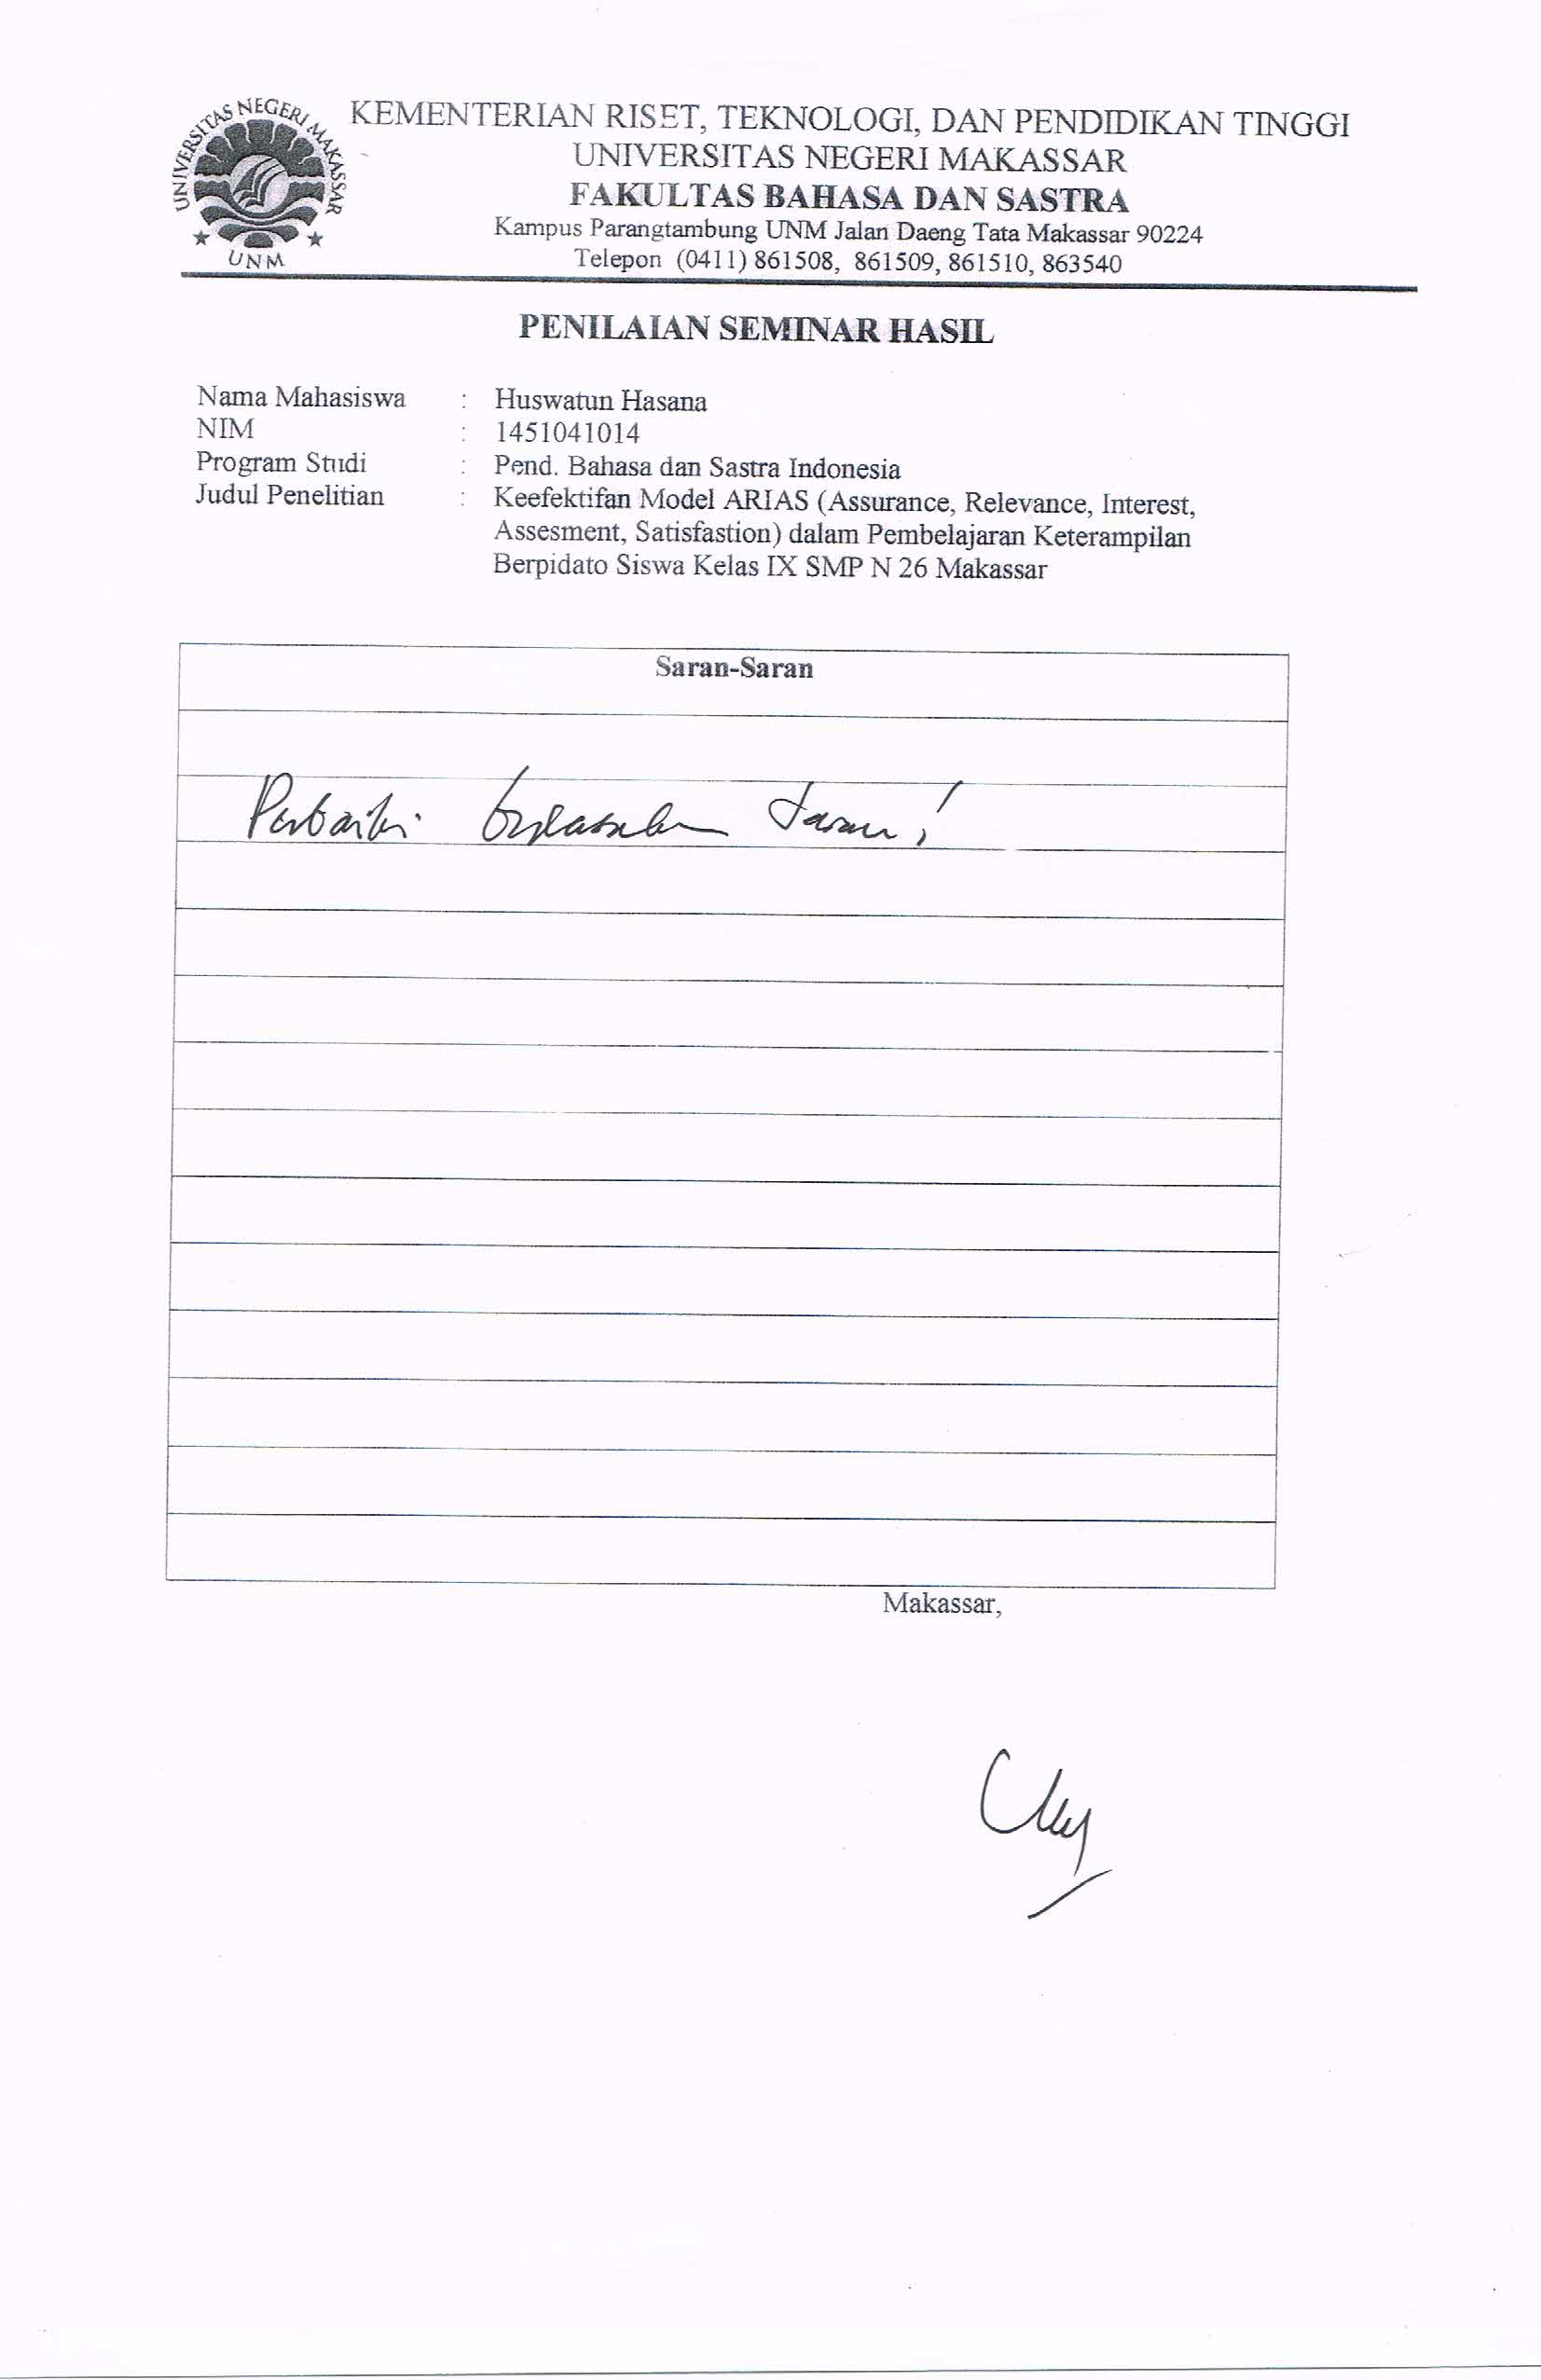 UNIVERSITAS NEGERI MAKASSAR
UNM
KEMENTERIAN RISET, TEKNOLOGI, DAN PENDIDIKAN TINGGI
UNIVERSITAS NEGERI MAKASSAR
FAKULTAS BAHASA DAN SASTRA
Kampus Parangtambung UNM Jalan Daeng Tata Makassar 90224
Telepon (0411) 861508, 861509, 861510, 863540
PENILAIAN SEMINAR HASIL
Nama Mahasiswa : Huswatun Hasana
NIM : 1451041014
Program Studi : Pend. Bahasa dan Sastra Indonesia
Judul Penelitian : Keefektifan Model ARIAS (Assurance, Relevance, Interest,
Assesment, Satisfastion) dalam Pembelajaran Keterampilan
Berpidato Siswa Kelas IX SMP N 26 Makassar
Saran-Saran
Perbaiki berdasarkan saran!
Makassar,